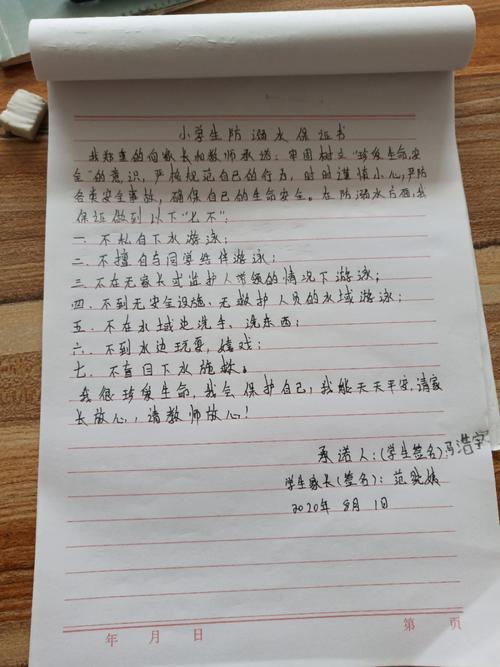 小学生防溺水保证书
我郑重的向家长和教师承诺：牢固树立“珍爱生命，安
全”的意识，严格规范自己的行为，时时谨慎小心，严防
各类安全事故，确保自己的生命安全。在防溺水方面，我
保证做到以下“七不”：
一、不私自下水游泳；
二、不擅自与同学结伴游泳；
三、不在无家长或监护人带领的情况下游泳；
四、不到无安全设施、无救护人员的水域游泳；
五、不在水域边洗手、洗东西；
六、不到水边玩耍、嬉戏；
七、不盲目下水施救。
我很珍爱生命，我会保护自己，我能天天平安，请家
长放心，请教师放心！
承诺人：（学生签名）冯浩宇
学生家长（签名）：范
2020年 8月 1日
年 月 日
第 页